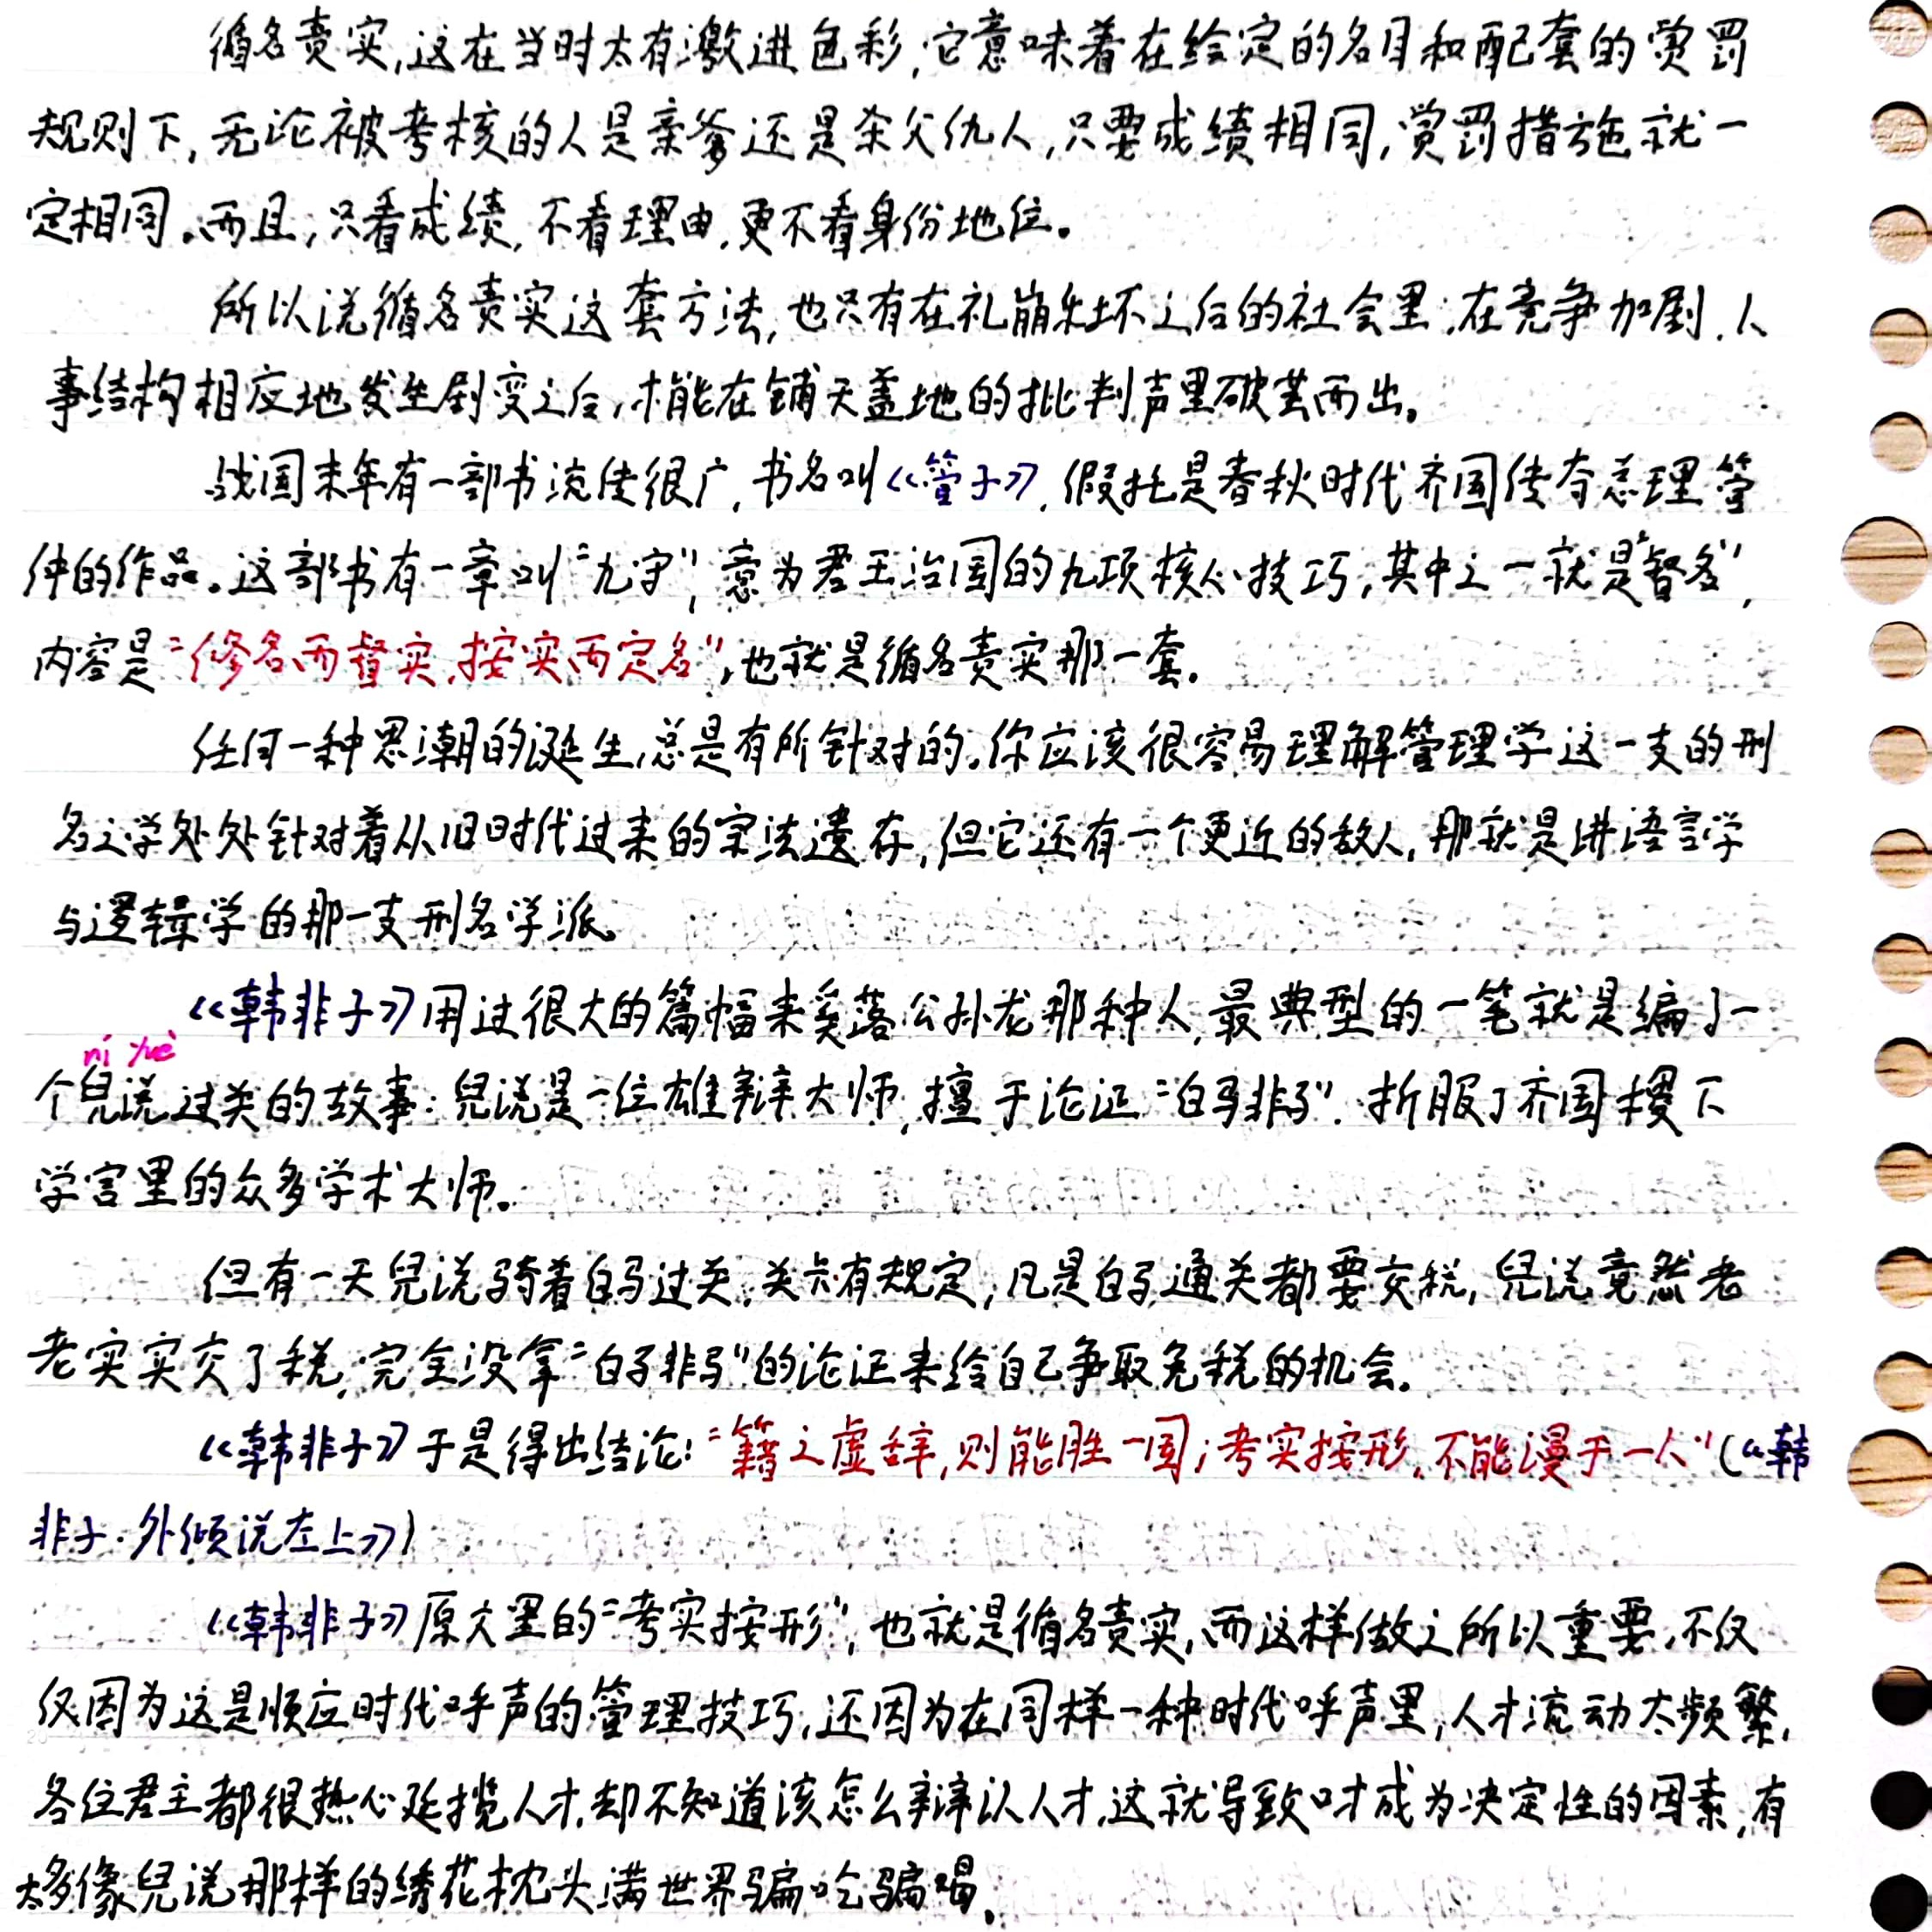 循名责实,这在当时太有激进色彩,它意味着在给定的名目和配套的赏罚
规则下,无论被考核的人是亲爹还是杀父仇人,只要成绩相同,赏罚措施就一
定相同。而且,只看成绩,不看理由,更不看身份地位。
所以说循名责实这套方法,也只有在礼崩乐坏之后的社会里,在竞争加剧,人
事结构相应地发生剧变之后,才能在铺天盖地的批判声里破茧而出。
战国末年有一部书流传很广,书名叫《管子》,假托是春秋时代齐国传奇总理管
仲的作品。这部书有一章叫“九守”,意为君王治国的九项核心技巧,其中之一就是“督名”,
内容是“修名而督实,按实而定名”,也就是循名责实那一套。
任何一种思潮的诞生,总是有所针对的。你应该很容易理解管理学这一支的刑
名之学处处针对着从旧时代过来的宗法遗存,但它还有一个更近的敌人,那就是讲语言学
与逻辑学的那一支刑名学派。
《韩非子》用过很大的篇幅来奚落公孙龙那种人,最典型的一笔就是编了一
ní yuè
个兒说过关的故事:兒说是一位雄辩大师,擅于论证“白马非马”,折服了齐国稷下
学宫里的众多学术大师。
但有一天兒说骑着白马过关,关卡有规定,凡是白马通关都要交税,兒说竟然老
老实实交了税,完全没拿“白马非马”的论证来给自己争取免税的机会。
《韩非子》于是得出结论:“籍之虚辞,则能胜一国;考实按形,不能谩于一人”(《韩
非子·外倾说左上》)
《韩非子》原文里的“考实按形”,也就是循名责实,而这样做之所以重要,不仅
仅因为这是顺应时代呼声的管理技巧,还因为在同样一种时代呼声里,人才流动太频繁,
各位君主都很热心延揽人才,却不知道该怎么辩认人才,这就导致口才成为决定性的因素,有
太多像兒说那样的绣花枕头满世界骗吃骗喝。